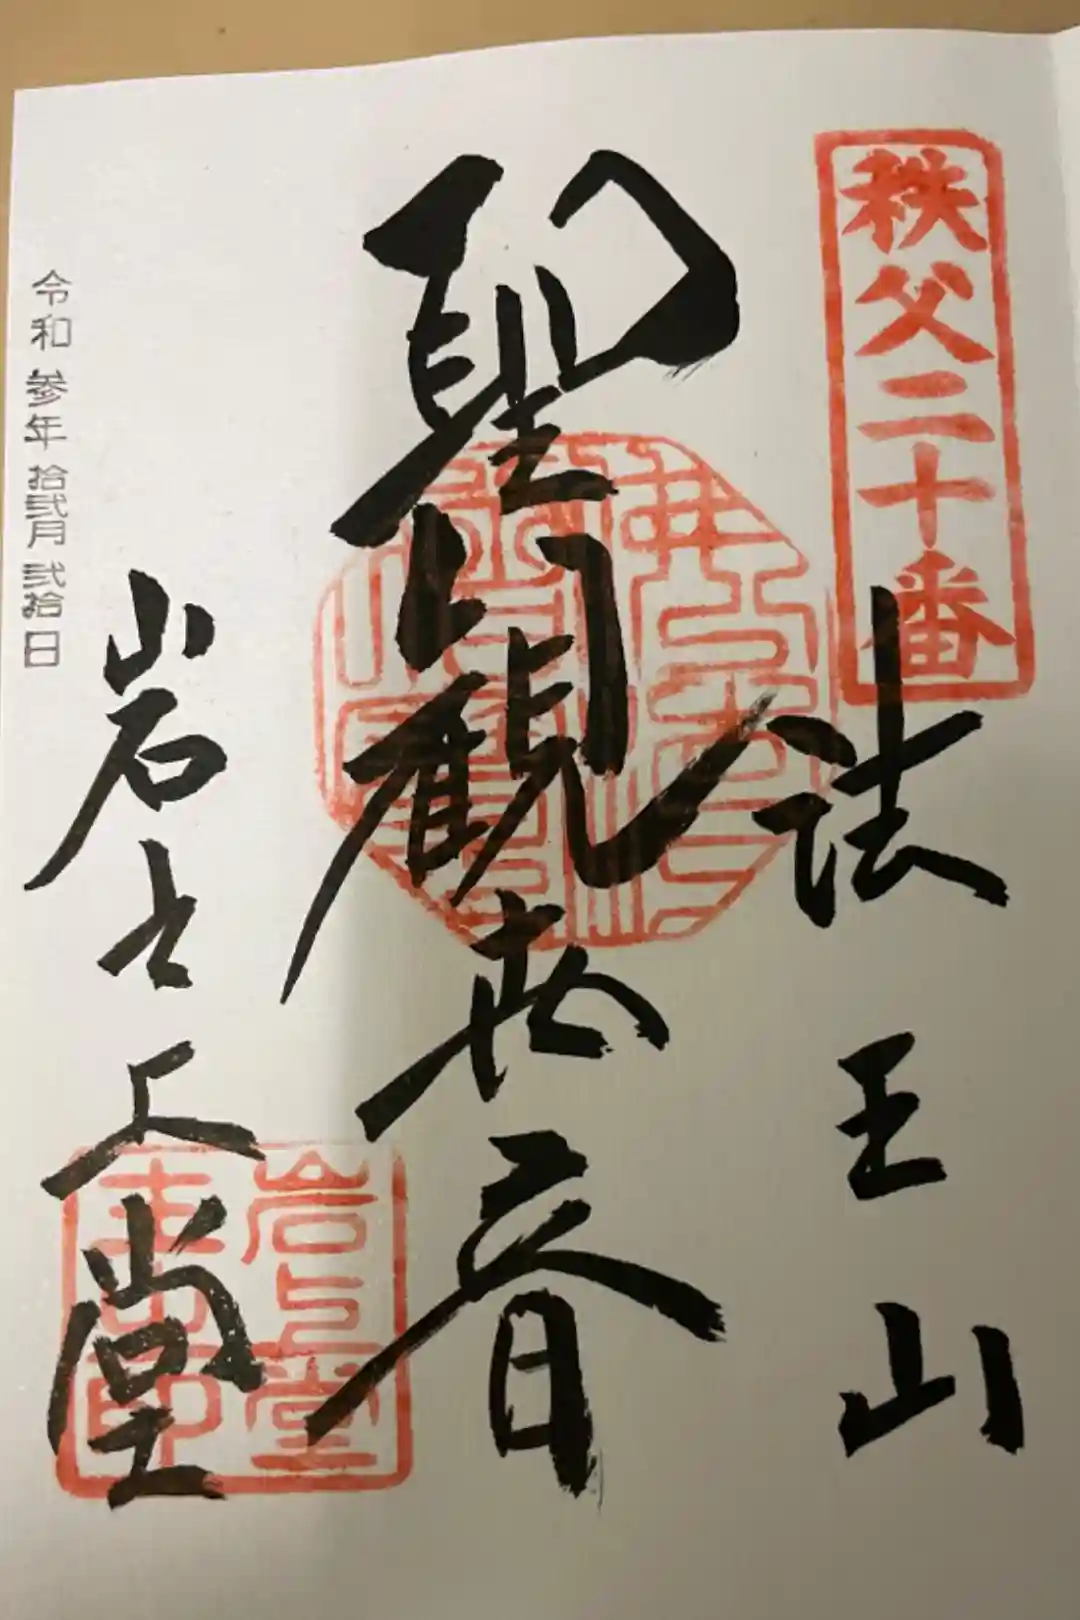 秩父二十番
法王山
聖観世音
岩之上堂
岩上堂
令和参年拾弐月弐拾日